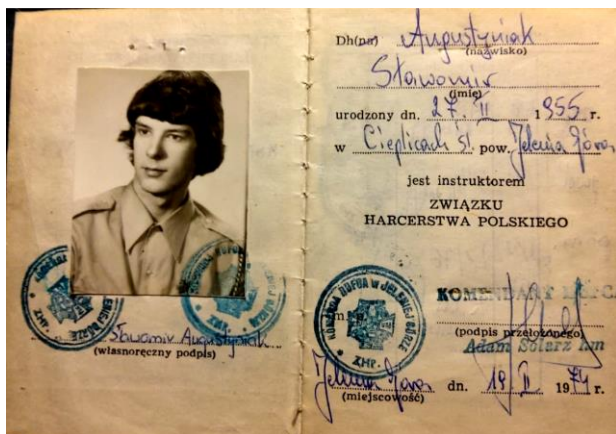 Sławomir Augustyniak
(własnoręczny podpis)
Dh(na) Augustyniak
(nazwisko)
Sławomir
(imię)
urodzony dn. 27. II 1955 r.
w Cieplicach Śl. pow. Jelenia Góra
jest instruktorem
ZWIĄZKU
HARCERSTWA POLSKIEGO
KOMENDA HUFCA W JELENIEJ GÓRZE
ZHP
KOMENDANT HUFCA
(podpis przełożonego)
Adam Solarz hm
Jelenia Góra dn. 19. II 1974 r.
(miejscowość)